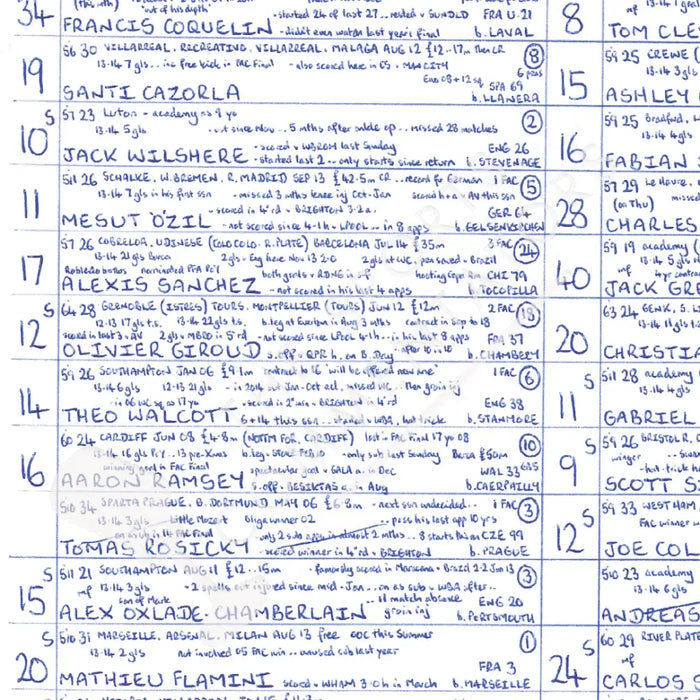 34 FRANCIS COQUELIN - started 24 of last 27 .. rested v SUNDLD FRA U.21
- didn't even watch last year's final b. LAVAL
"out of his depth"
19 56 30 VILLARREAL. RECREATIVO. VILLARREAL. MALAGA AUG 12 £12..17m Then CR 8
13.14 7 gls .. inc free kick in FAC Final - also scored here in CS v MAN CITY 6 pens
Euro 08 + 12 sq SPA 69
SANTI CAZORLA b. LLANERA
S 10 57 23 Luton - academy as 9 yo 2
13.14 5 gls - out since Nov .. 5 mths after ankle op .. missed 28 matches
- scored v WBROM last Sunday ENG 26
JACK WILSHERE - started last 2 .. only starts since return b. STEVENAGE
11 511 26 SCHALKE. W.BREMEN. R.MADRID SEP 13 £42.5m CR .. record for German 1 FAC 5
13.14 7 gls in his first ssn - missed 3 mnths knee inj Oct-Jan
- scored in 4'rd v BRIGHTON 3.2 a. GER 64
MESUT ÖZIL - not scored since 4-1 h v LPOOL .. in 8 apps b. GELSENKIRCHEN
17 57 26 COBRELOA. UDINESE (COLO COLO. R.PLATE) BARCELONA JUL 14 £35m 3 FAC 24
13.14 21 gls Barca 2 gls v Eng here Nov 13 2.0 2 gls at WC .. pen saved v Brazil
nominated PFA PoY both goals v RDNG in s-f hosting Copa Am CHI 79
ALEXIS SANCHEZ - not scored in his last 4 apps b. TOCOPILLA
S 12 64 28 GRENOBLE (ISTRES) TOURS. MONTPELLIER (TOURS) JUN 12 £12m 2 FAC 18
12.13 17 gls t.s. 13.14 22 gls t.s. b. leg at Everton in Aug 3 mths contract in sep to 18
scored in last 3 v AV 2 gls v MBRO in 5'rd - not scored since LPOOL 4-1 h .. in his last 8 apps FRA 37
OLIVIER GIROUD s.off v QPR h. on B.Day b. CHAMBERY
14 59 26 SOUTHAMPTON JAN 06 £9.1m contract to 16 "will be offered new one" 1 FAC 6
13.14 6 gls 12.13 21 gls - in 2014 out Jan - Oct acl .. missed WC .. Then groin inj
- in 06 WC sq as 17 yo - scored in 2' min v BRIGHTON in 4'rd ENG 38
THEO WALCOTT 6+14 this ssn .. started v WBA, hat trick b. STANMORE
16 60 24 CARDIFF JUN 08 £4.8m (NOTTM FOR. CARDIFF) lost in FAC Final 17 yo 08 10
13.14 16 gls PoY .. 13 pre-Xmas b. leg v STOKE FEB 10 - only sub last Sunday Barca £50m
winning goal in FAC Final spectacular goal v GALA a. in Dec WAL 33
AARON RAMSEY s.off v BESIKTAS a. in Aug b. CAERPHILLY
510 34 SPARTA PRAGUE. B.DORTMUND MAY 06 £6.8m - next ssn undecided .. 1 FAC 3
13.14 3 gls Little Mozart Bliga winner 02 .. poss his last app 10 yrs
- only 2 sub apps in almost 2 mths .. 8 starts this ssn CZE 99
TOMAS ROSICKY - scored winner in 4'rd v BRIGHTON b. PRAGUE
S 15 511 21 SOUTHAMPTON AUG 11 £12..15m - famously scored in Maracana v Brazil 2.2 Jun 13 3
13.14 3 gls - 2 spells out injured since mid-Jan .. on as sub v WBA after ..
mf son of Mark .. 11 match absence ENG 20
ALEX OXLADE-CHAMBERLAIN groin inj b. PORTSMOUTH
S 20 510 31 MARSEILLE. ARSENAL. MILAN AUG 13 free eoc this Summer 1
13.14 2 gls not involved 05 FAC win .. unused sub last year
mf FRA 3
MATHIEU FLAMINI scored v WHAM 3.0 h in March b. MARSEILLE
8 TOM CLE
15 59 25 CREWE (
13.14 3 gls
ASHLEY
16 59 25 Bradford. L
13.14 4 gls
FABIAN
28 57 29 Le Havre.
(on Thu) missed
CHARLES
40 59 19 academy (
mf
JACK GRE
20 63 24 GENK. S.
CHRISTIA
S 11 511 28 academy
13.14 4 gls
GABRIEL
S 9 59 26 BRISTOL R.
winger
SCOTT S
S 12 59 33 WEST HAM.
FAC winner
JOE COL
510 23 academy
13.14 6 gls
ANDREAS
S 24 60 29 RIVER PLATE
mf
CARLOS